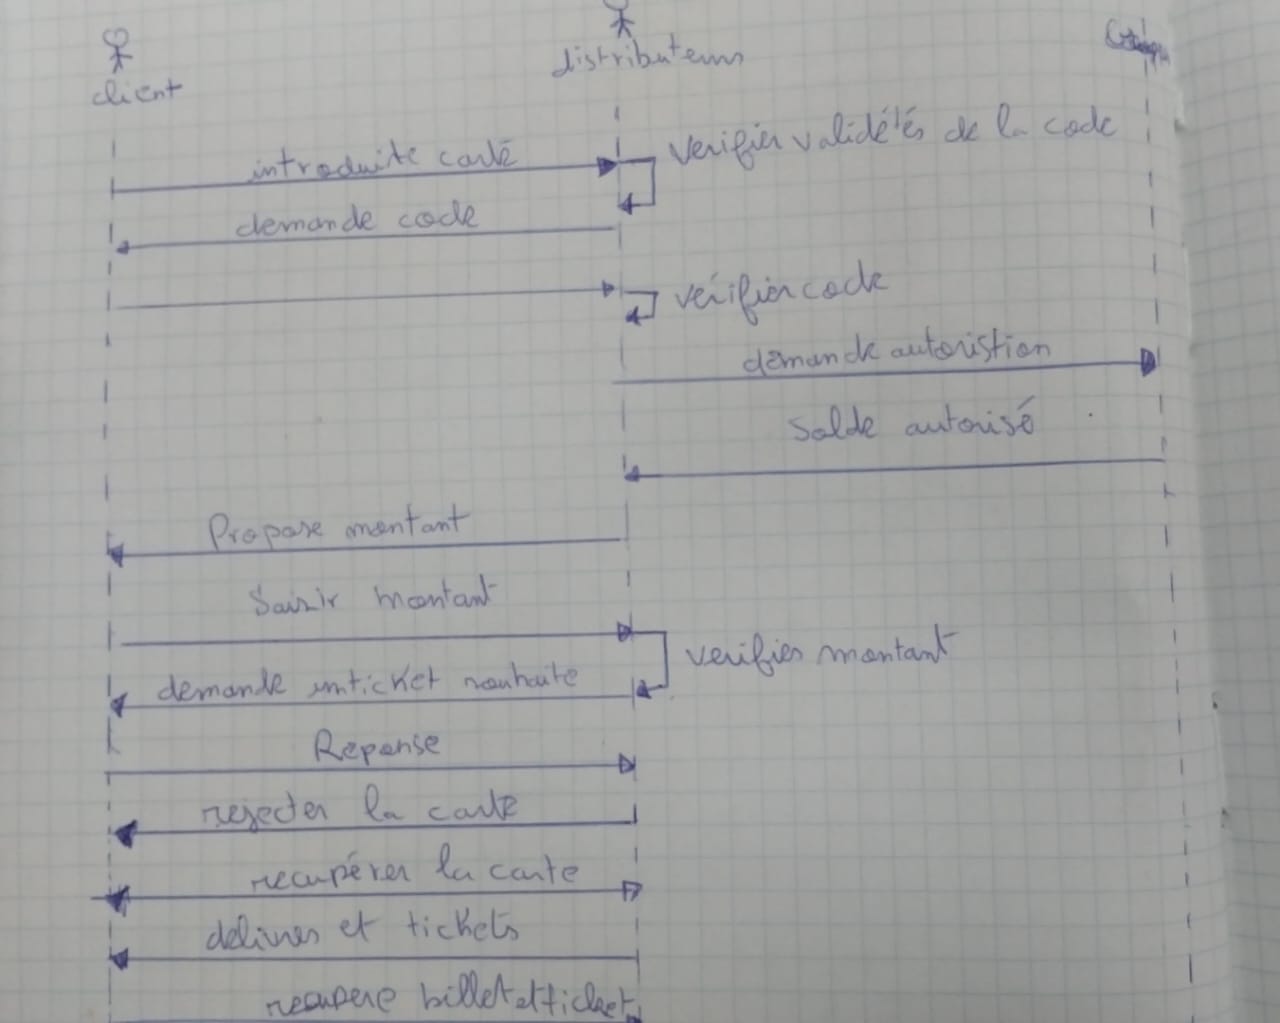 client
distributeurs
introduite carte
verifier validités de la code
demande code
vérifier code
demande autoristion
Solde autorisé
Propose montant
Saisir montant
verifier montant
demande unticket souhaite
Reponse
rejecter la carte
recupérer la carte
delivres et tickets
recupere billet et ticket